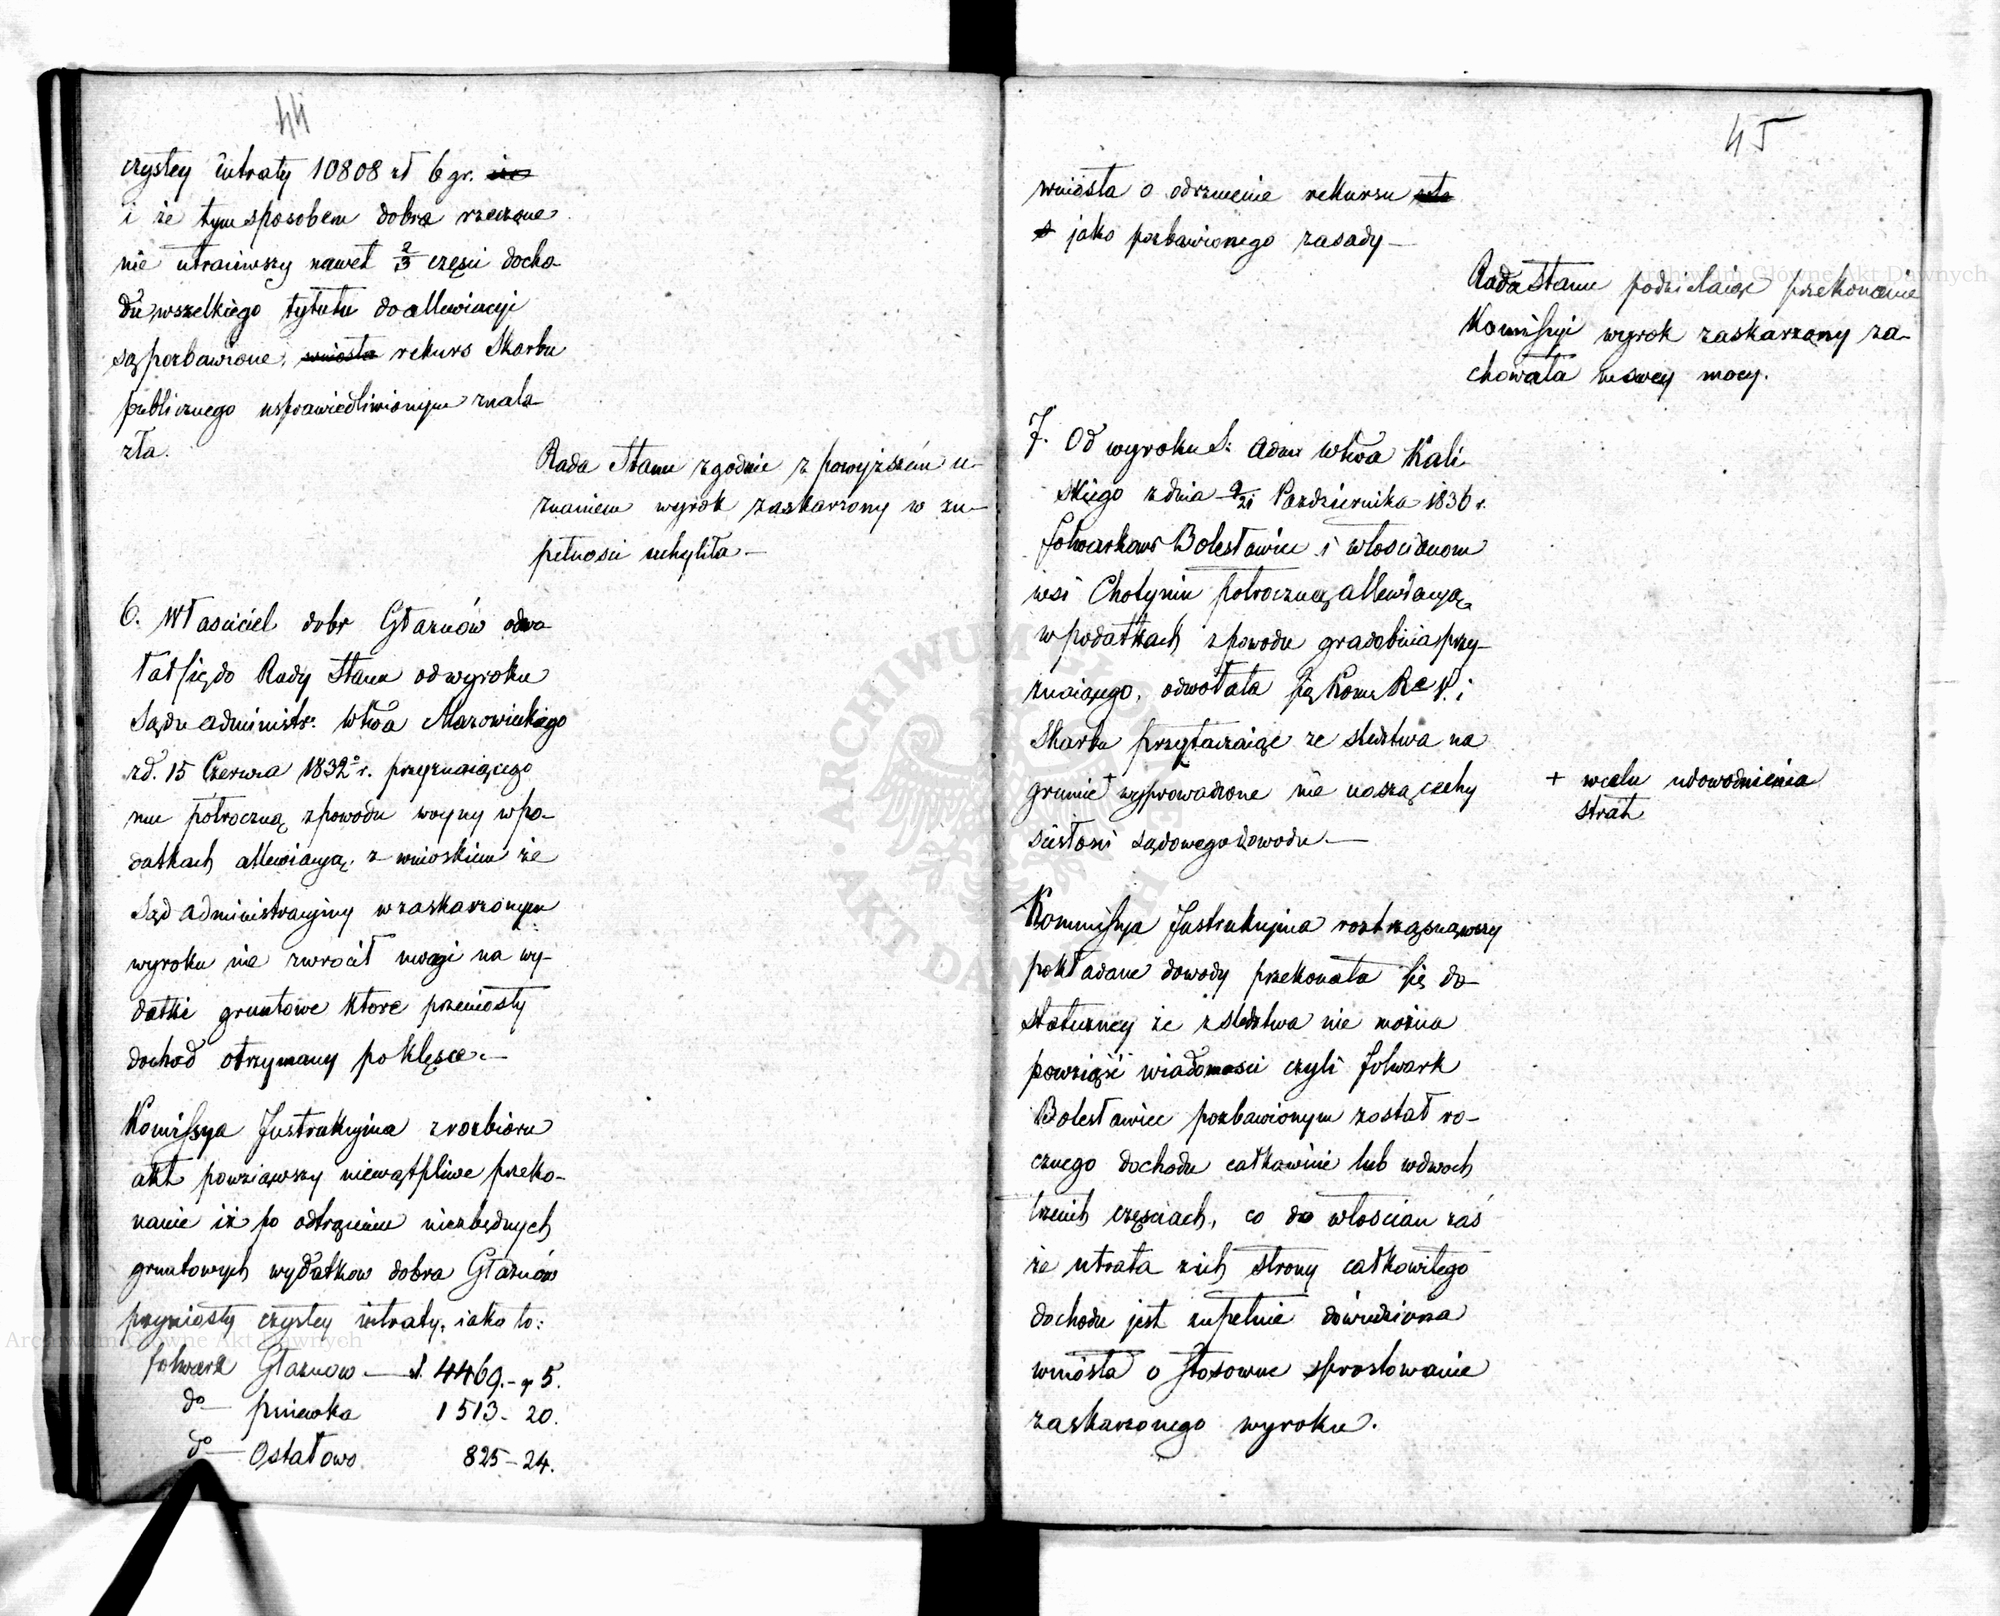 44
czystey intraty 10808 zł 6 gr.
i że tym sposobem dobra rzeczone
nie utraciwszy nawet 2/3 części docho-
du, wszelkiego tytułu do allewiacyi
są pozbawione, wniosła rekurs Skarbu
publicznego usprawiedliwionym znala-
zła.
Rada Stanu zgodnie z powyższém u-
znaniem wyrok zaskarzony w zu-
pełnosci uchyliła —
6. Własciciel dobr Głaznów odwo-
łał się do Rady Stanu od wyroku
Sądu administr: Wtwa Mazowieckiego
z d. 15 Czerwca 1832 r. przyznaiącego
mu połroczną z powodu woyny w po-
datkach allewiacyą, z wnioskiem że
Sąd administracyiny w zaskarzonym
wyroku nie zwrocił uwagi na wy-
datki gruntowe ktore przeniosły
dochod otrzymany po klęsce. —
Komissya Instrukcyjna z rozbioru
akt powziąwszy niewątpliwe przeko-
nanie iż po odtrąceniu niezbędnych
gruntowych wydatkow dobra Głaznów
przyniosły czystey intraty, iako to:
folwark Głaznow — zł. 4469. - gr 5.
do — Pniewka 1513 - 20.
do — Ostałowo 825 - 24.
45
wniosła o odrzucenie rekursu
jako pozbawionego zasady —
Rada Stanu podzielaiąc przekonanie
Komissyi wyrok zaskarzony za-
chowała w swey mocy.
7. Od wyroku S: Adm Wtwa Kali-
skiego z dnia 9/21 Pazdziernika 1836 r.
folwarkowi Bolesławiec i włoscianom
wsi Chotynin połroczną allewiacyą
w podatkach z powodu gradobicia przy-
znaiącego, odwołała się Kom: R P. i
Skarbu przytaczaiąc ze sledztwa na
gruncie + wyprowadzone nie noszą cechy
+ w celu udowodnienia
strat
scisłosci sądowego dowodu. —
Kommissya Instrukcyjna roztrząsnąwszy
pokładane dowody przekonała się do-
stateczney że z sledztwa nie można
powziąść wiadomosci czyli folwark
Bolesławiec pozbawionym został ro-
cznego dochodu całkowicie lub w dwoch
trzecich częsciach, co do włoscian zaś
że utrata z ich strony całkowitego
dochodu jest zupełnie dowiedziona
wniosła o stosowne sprostowanie
zaskarzonego wyroku.
Archiwum Główne Akt Dawnych
Archiwum Główne Akt Dawnych
ARCHIWUM GŁÓWNE AKT DAWNYCH